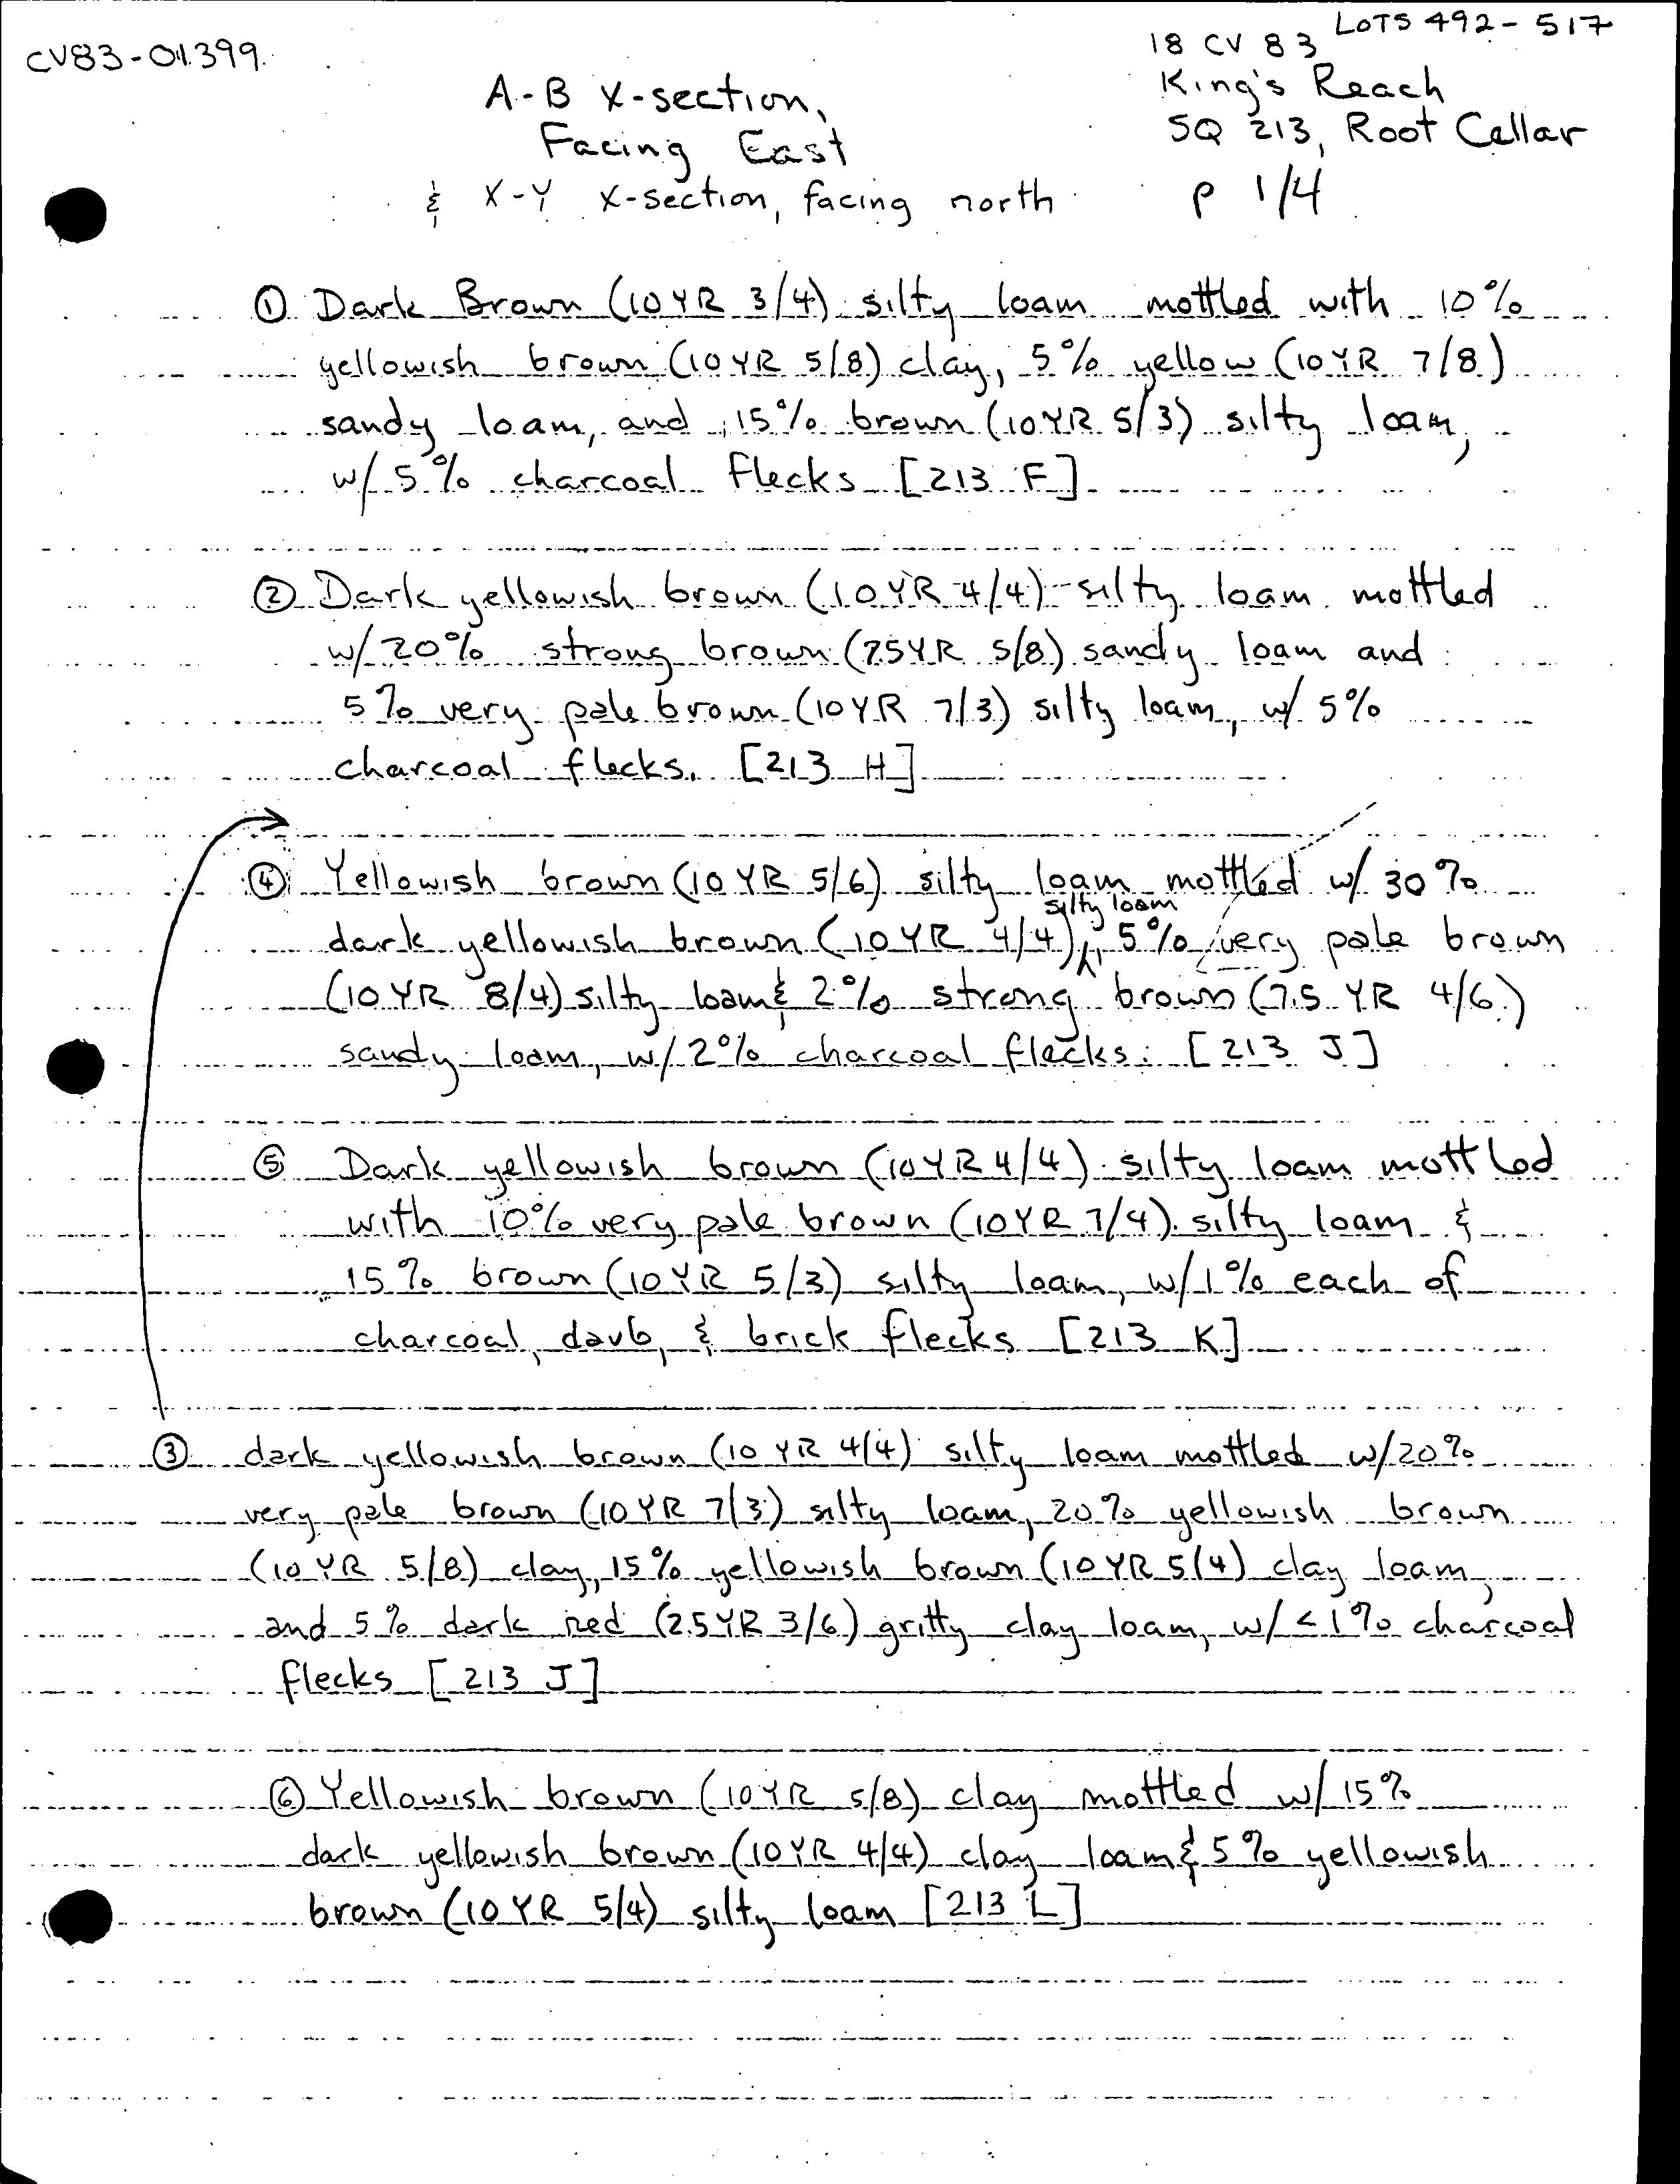 CV83-01399
LOTS 492-517
18 CV 83
King's Reach
SQ 213, Root Cellar
p 1/4
A-B X-section,
Facing East
& X-Y X-section, facing north
① Dark Brown (10YR 3/4) silty loam mottled with 10%
yellowish brown (10YR 5/8) clay, 5% yellow (10YR 7/8)
sandy loam, and 15% brown (10YR 5/3) silty loam,
w/ 5% charcoal flecks [213 F]
② Dark yellowish brown (10YR 4/4) silty loam mottled
w/ 20% strong brown (7.5YR 5/8) sandy loam and
5% very pale brown (10YR 7/3) silty loam, w/ 5%
charcoal flecks. [213 H]
④ Yellowish brown (10YR 5/6) silty loam mottled w/ 30%
silty loam
dark yellowish brown (10YR 4/4), 5% very pale brown
(10YR 8/4) silty loam & 2% strong brown (7.5 YR 4/6)
sandy loam, w/ 2% charcoal flecks. [213 J]
⑤ Dark yellowish brown (10YR 4/4) silty loam mottled
with 10% very pale brown (10YR 7/4) silty loam &
15% brown (10YR 5/3) silty loam, w/ 1% each of
charcoal, daub, & brick flecks [213 K]
③ dark yellowish brown (10 YR 4/4) silty loam mottled w/20%
very pale brown (10YR 7/3) silty loam, 20% yellowish brown
(10YR 5/8) clay, 15% yellowish brown (10YR 5/4) clay loam,
and 5% dark red (2.5YR 3/6) gritty clay loam, w/ <1% charcoal
flecks [213 J]
⑥ Yellowish brown (10YR 5/8) clay mottled w/ 15%
dark yellowish brown (10YR 4/4) clay loam & 5% yellowish
brown (10YR 5/4) silty loam [213 L]